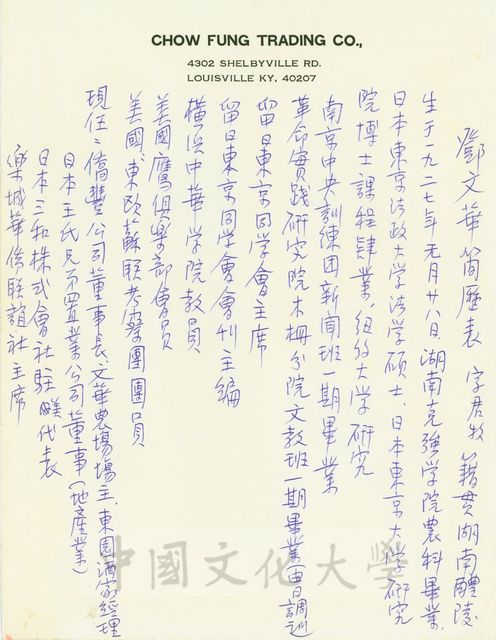 CHOW FUNG TRADING CO.,
4302 SHELBYVILLE RD.
LOUISVILLE KY, 40207
鄧文華简歷表 字君牧 籍贯湖南醴陵
生于一九二七年元月廿八日湖南克強学院農科畢業
日本東京法政大学法学碩士、日本東京大学研究
院博士課程肄業、纽约大学研究
南京中央訓練团新闻班一期畢業
革命实践研究院木栅分院文教班一期畢業(由日調训
留日東京同学會主席
留日東京同学會會刊主編
横浜中華学院教員
美國鷹俱樂部會員
美國、東欧蘇联考察團團員
現任:僑豐公司董事長、文華農場場主、東園酒家經理
日本王氏兄弟置業公司董事(地產業)
日本三和株式會社駐美代表
樂城華僑联誼社主席
中國文化大學